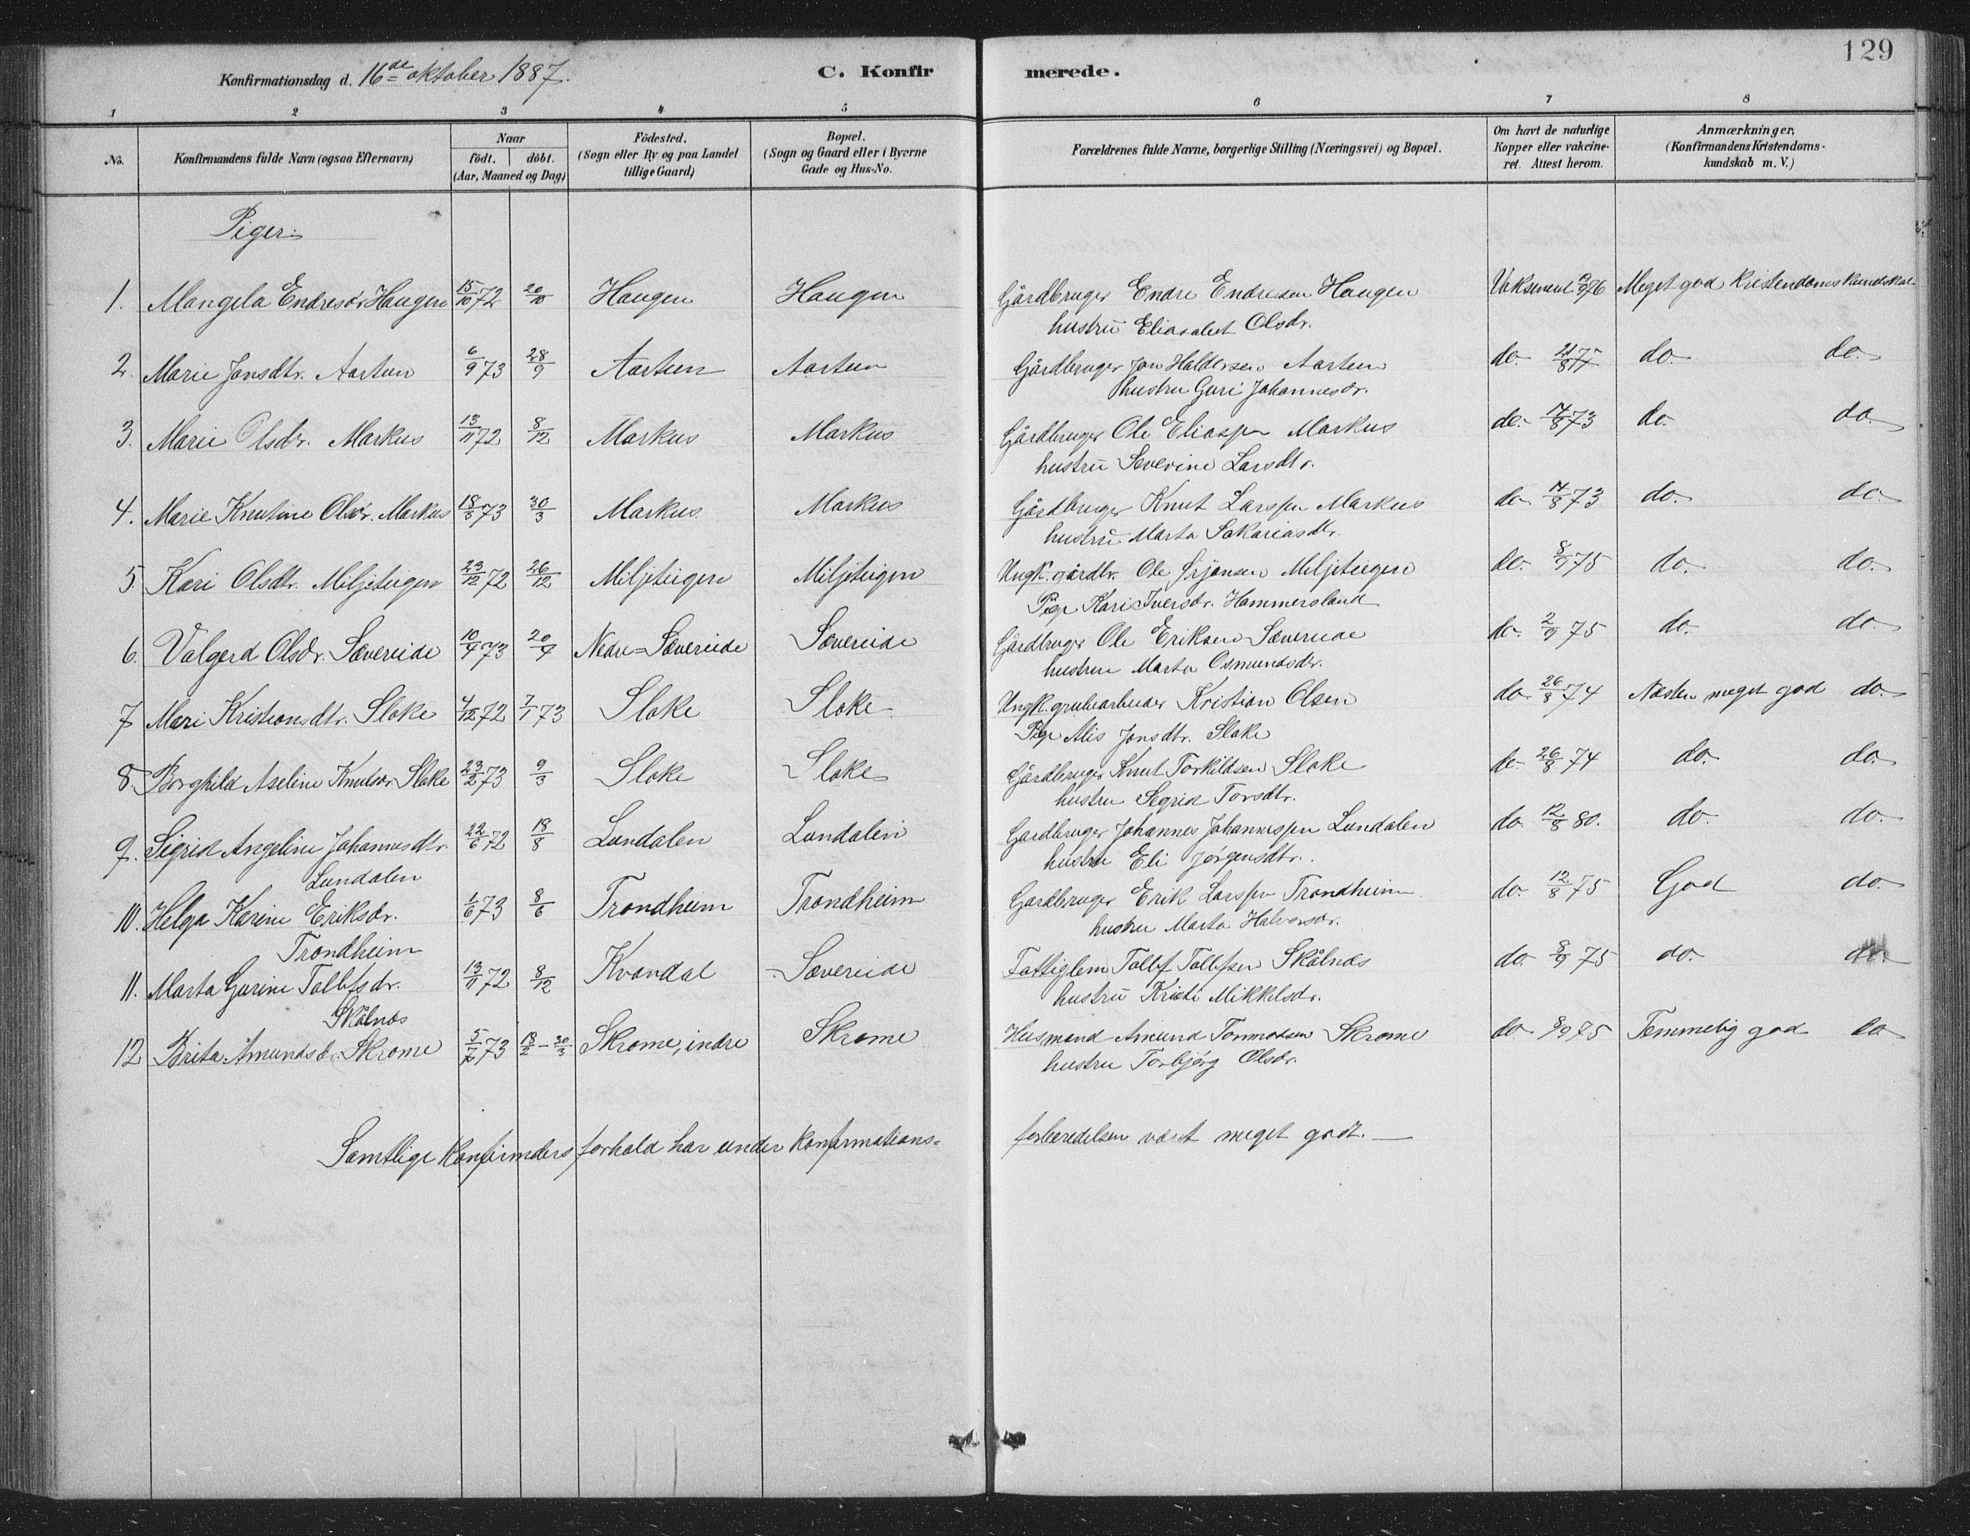 129
Konfirmationsdag d. 16de oktober 1887.
C. Konfirmerede.
1 2 3 4 5 6 7 8
No.
Konfirmandens fulde Navn (ogsaa Efternavn)
Naar
födt. döbt.
(Aar, Maaned og Dag)
Födested.
(Sogn eller By og paa Landet
tillige Gaard)
Bopæl.
(Sogn og Gaard eller i Byerne
Gade og Hus-No.
Forældrenes fulde Navne, borgerlige Stilling (Næringsvei) og Bopæl.
Om havt de naturlige
Kopper eller vakcine-
ret. Attest herom.
Anmærkninger.
(Konfirmandens Kristendoms-
kundskab m. V.)
Piger:
1. Mangela Endresdr Haugen 15/10 72 20/10 Haugen Haugen Gårdbruger Endre Endresen Haugen Meget god Kristendomskundskab
hustru Eliasabet Olsdr.
2. Marie Jonsdtr. Aartun 6/9 73 28/9 Aartun Aartun Gårdbruger Jon Haldorsen Aartun do. do. do.
hustru Guri Johannesdr.
3. Marie Olsdr. Markus 13/11 72 8/12 Markus Markus Gårdbruger Ole Eliassen Markus do. 17/8 73 do. do.
hustru Severine Larsdtr.
4. Marie Knutine Olsdr. Markus 18/3 73 30/3 Markus. Markus Gårdbruger Knut Larssen Markus do 17/8 73 do. do.
hustru Marta Sakariasdtr.
5. Kari Olsdtr. Miljeteigen 23/12 72 26/12 Miljeteigen Miljeteigen Ungk. gårdbr. Ole Miljeteigen do. 8/9 75 do. do.
Pige Kari Iversdr. Hammersland
6. Valgerd Olsdr. Sævereide 10/4 73 20/4 Nedre=Sævereide Sævereide Gårdbruger Ole Eriksen Sævereide do. 2/9 75 do. do.
hustru Marta Osmundsdr.
7 Mari Kristiansdtr. Sloke 4/12 72 7/1 73 Sloke Sloke Ungk. grubearbeider Kristian Olsen do. 26/8 74 Næsten meget god do.
Pige Alis Jonsdtr. Sloke
8. Borghild Aseline Knutsdr Sloke 23/2 73 9/3 Sloke Sloke Gårdbruger Knut Torkildsen Sloke do. 26/8 74 do. do.
hustru Segrid Torsdtr.
9. Sigrid Angeline Johannesdtr. 22/6 72 18/8 Lundalen Lundalen Gardbruger Johannes Johannessen Lundalen do. 12/8 80. do. do.
Lundalen hustru Eli Jørgensdtr.
10. Helga Karine Eriksdr. 1/6 73 8/6 Trondheim Trondheim Gardbruger Erik Larssen Trondheim do. 12/8 75 God do.
Trondheim hustru Marta Halvorsdr.
11. Marta Gurine Tollefsdr. 13/11 72 8/12 Kvandal Sævereide Fattiglem Tollef Tollefsen Skålnes do. 8/9 75 do. do.
Skålnes hustru Kristi Mikkelsdr.
12 Brita Amundsdr. Skrome 73 Skrome, indre Skrome Husmand Amund Tormodsen Skrome do. 8/9 75 Temmelig god do
hustru Torbjørg Olsdr.
Samtlige konfirmders forhold har under konfirmations= forberedelsen vært meget godt.—